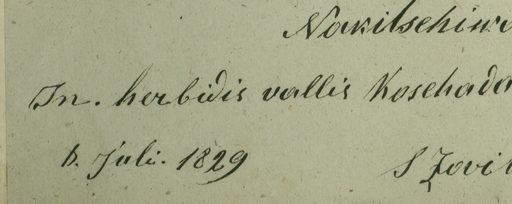 Nakitschiwa
In. herbidis vallis Koschada
b. Juli. 1829
S Zovit